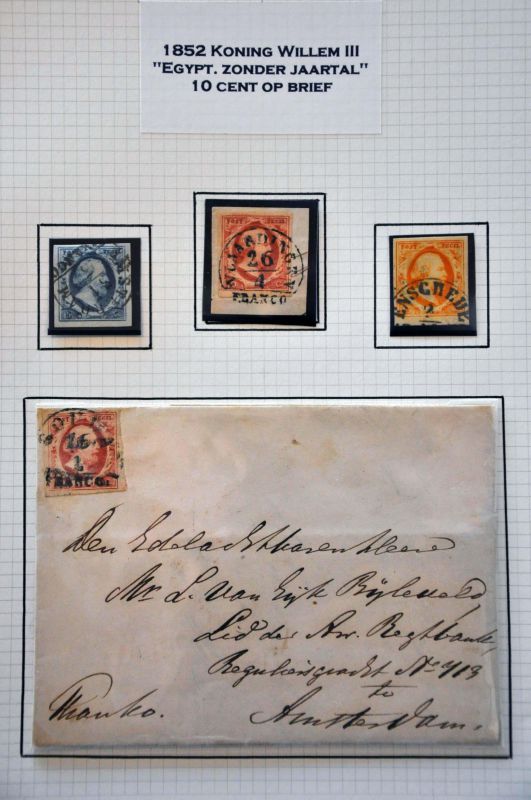 1852 Koning Willem III
"Egypt. zonder jaartal"
10 cent op brief
POST ZEGEL
VLAARDINGEN
26
4
FRANCO
POST ZEGEL
ENSCHEDE
2
26
1
FRANCO.
Den Edelachtbaren Heere
Mr. L. van Eijk Bijleveld,
Lid der Arr. Regtbank,
Reguliersgracht No
te
Franko.
Amsterdam.